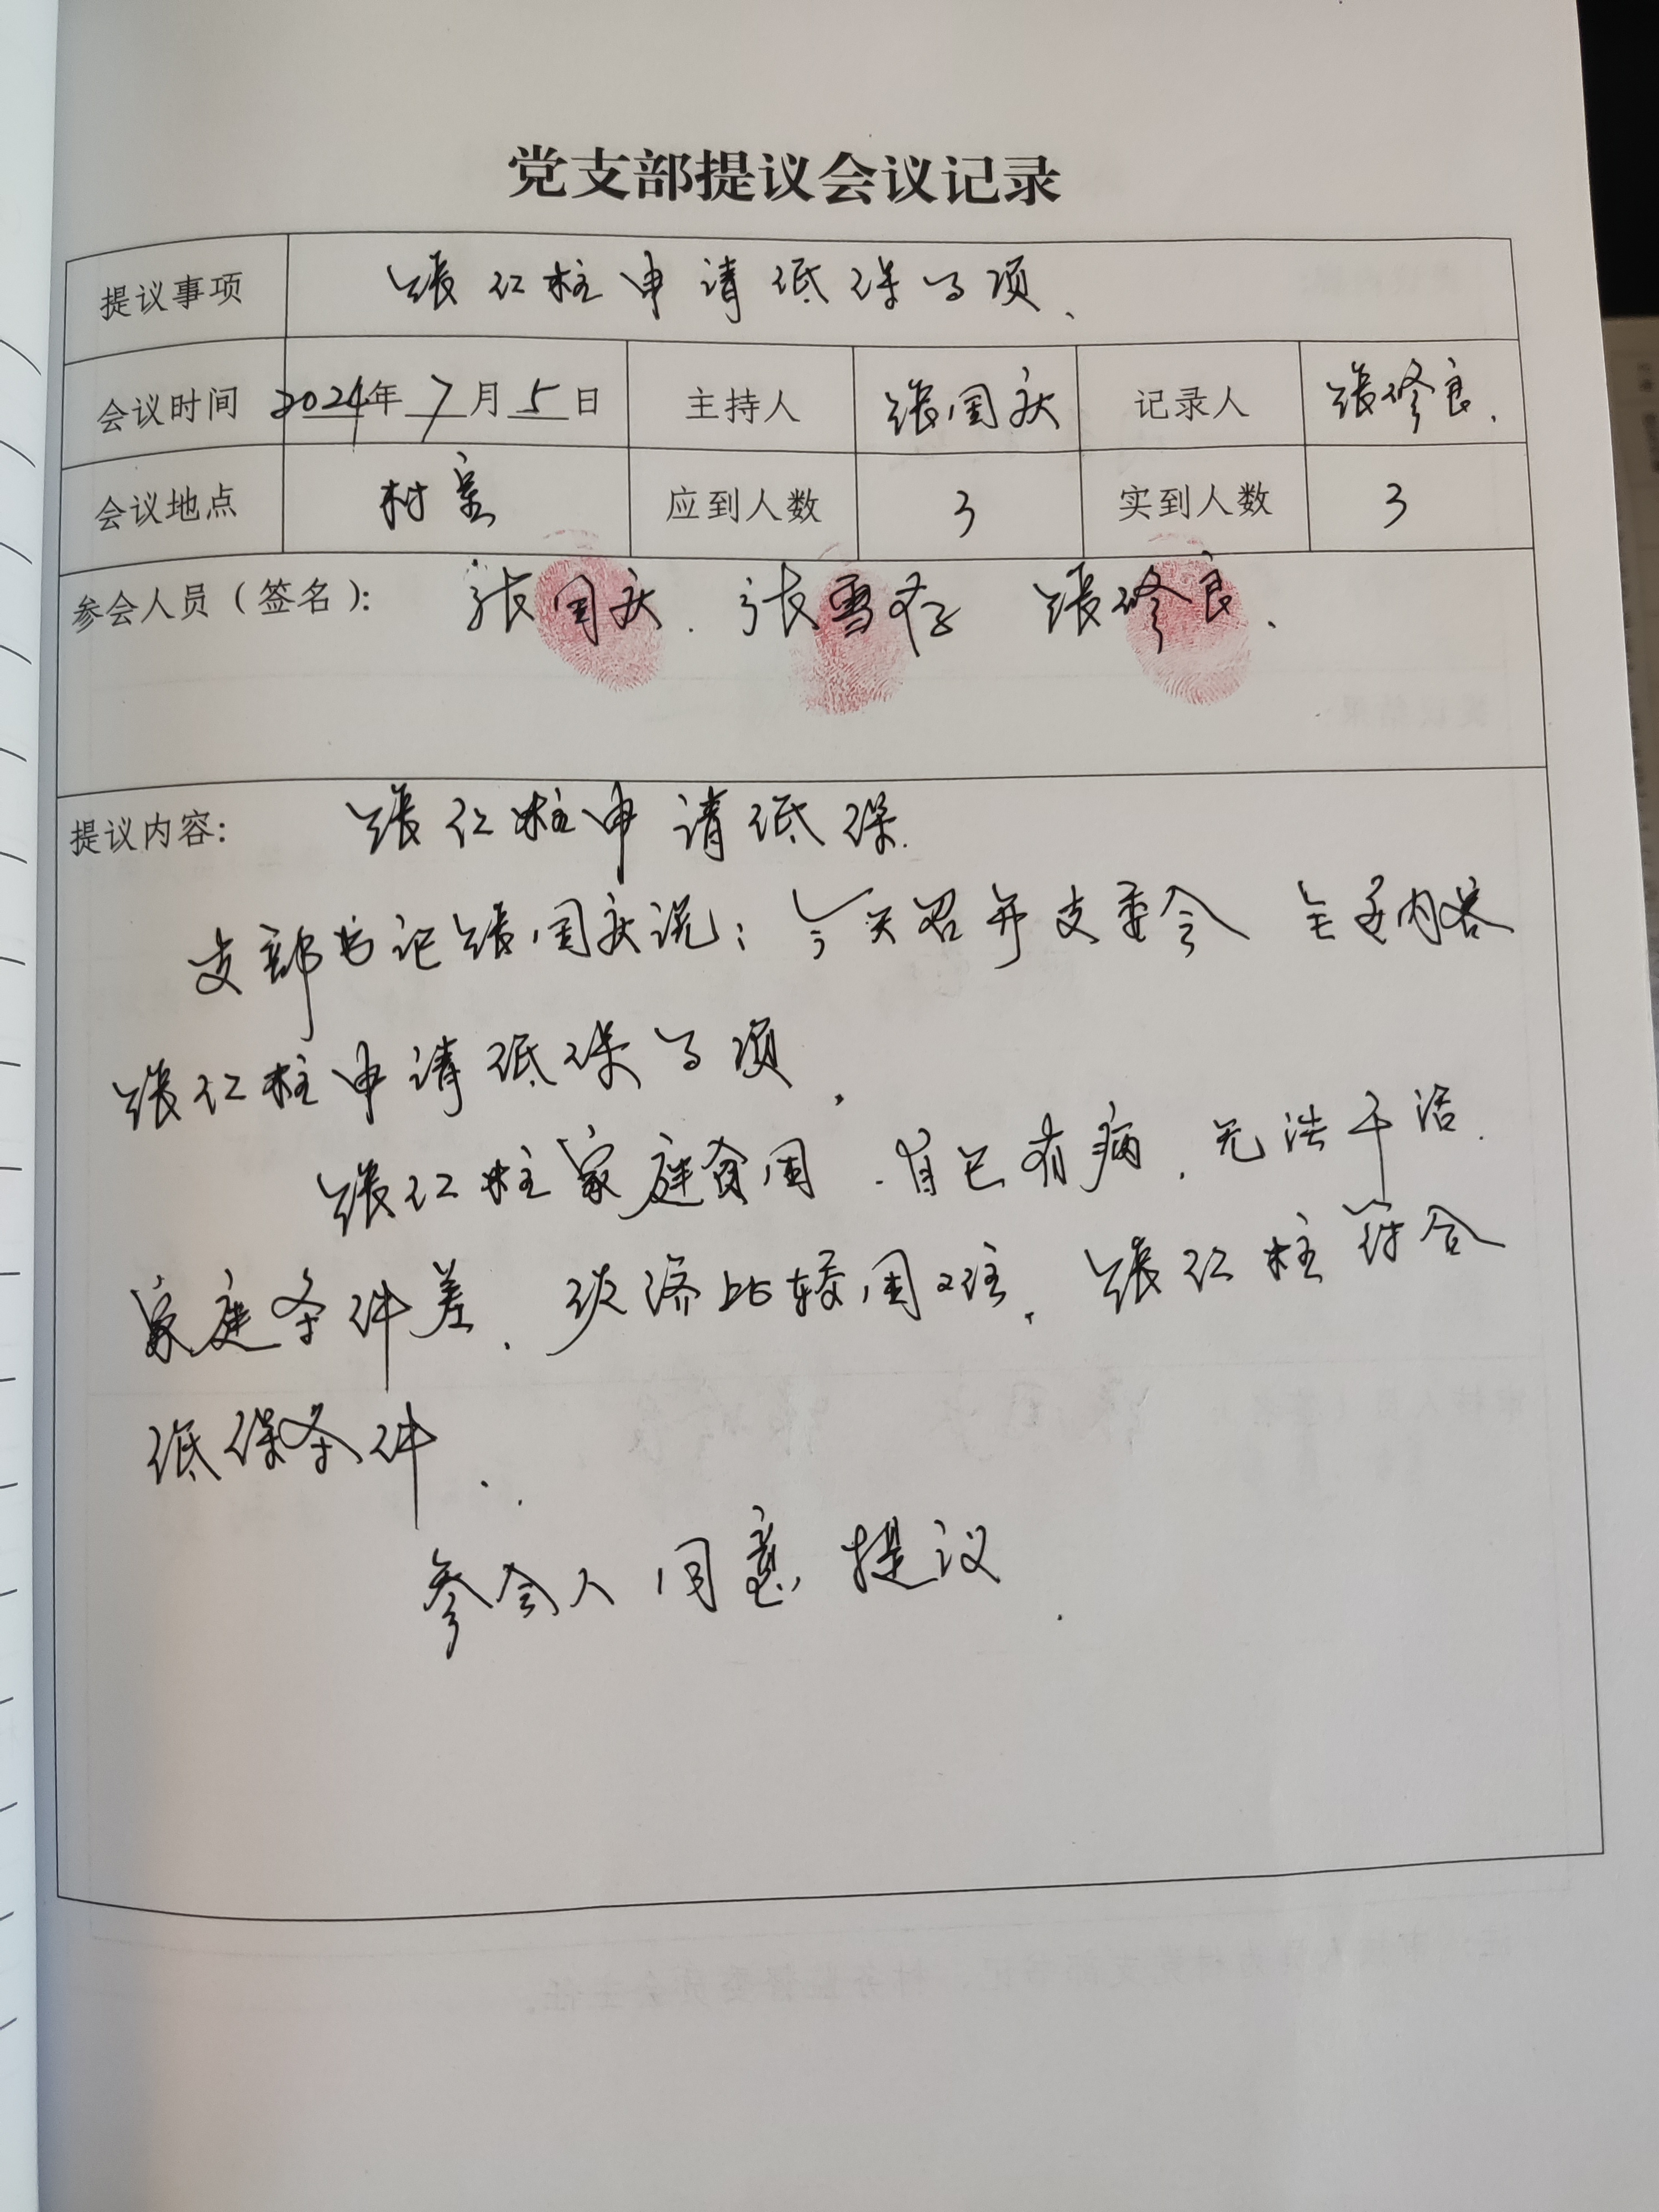 党支部提议会议记录
提议事项 张仁柱申请低保事项.
会议时间 2024年7月5日 主持人 张国庆 记录人 张修良.
会议地点 村室 应到人数 3 实到人数 3
参会人员（签名）： 张国庆. 张雪存 张修良.
提议内容： 张仁柱申请低保.
支部书记张国庆说：今天召开支委会 主要内容
张仁柱申请低保事项.
张仁柱家庭贫困.自己有病.无法干活.
家庭条件差.经济比较困难.张仁柱符合
低保条件..
参会人同意提议.